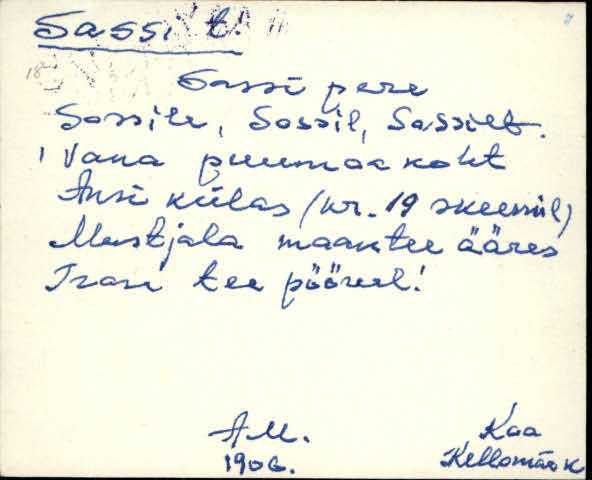 Sassi t.
Sassi pere
Sassile, Sassil, Sassilt.
Vana puumaa koht
Ansi külas (nr. 19 skeemil)
Mustjala maantee ääres
tee pöörul!
A.M. Kaa
1906. Kellomäe